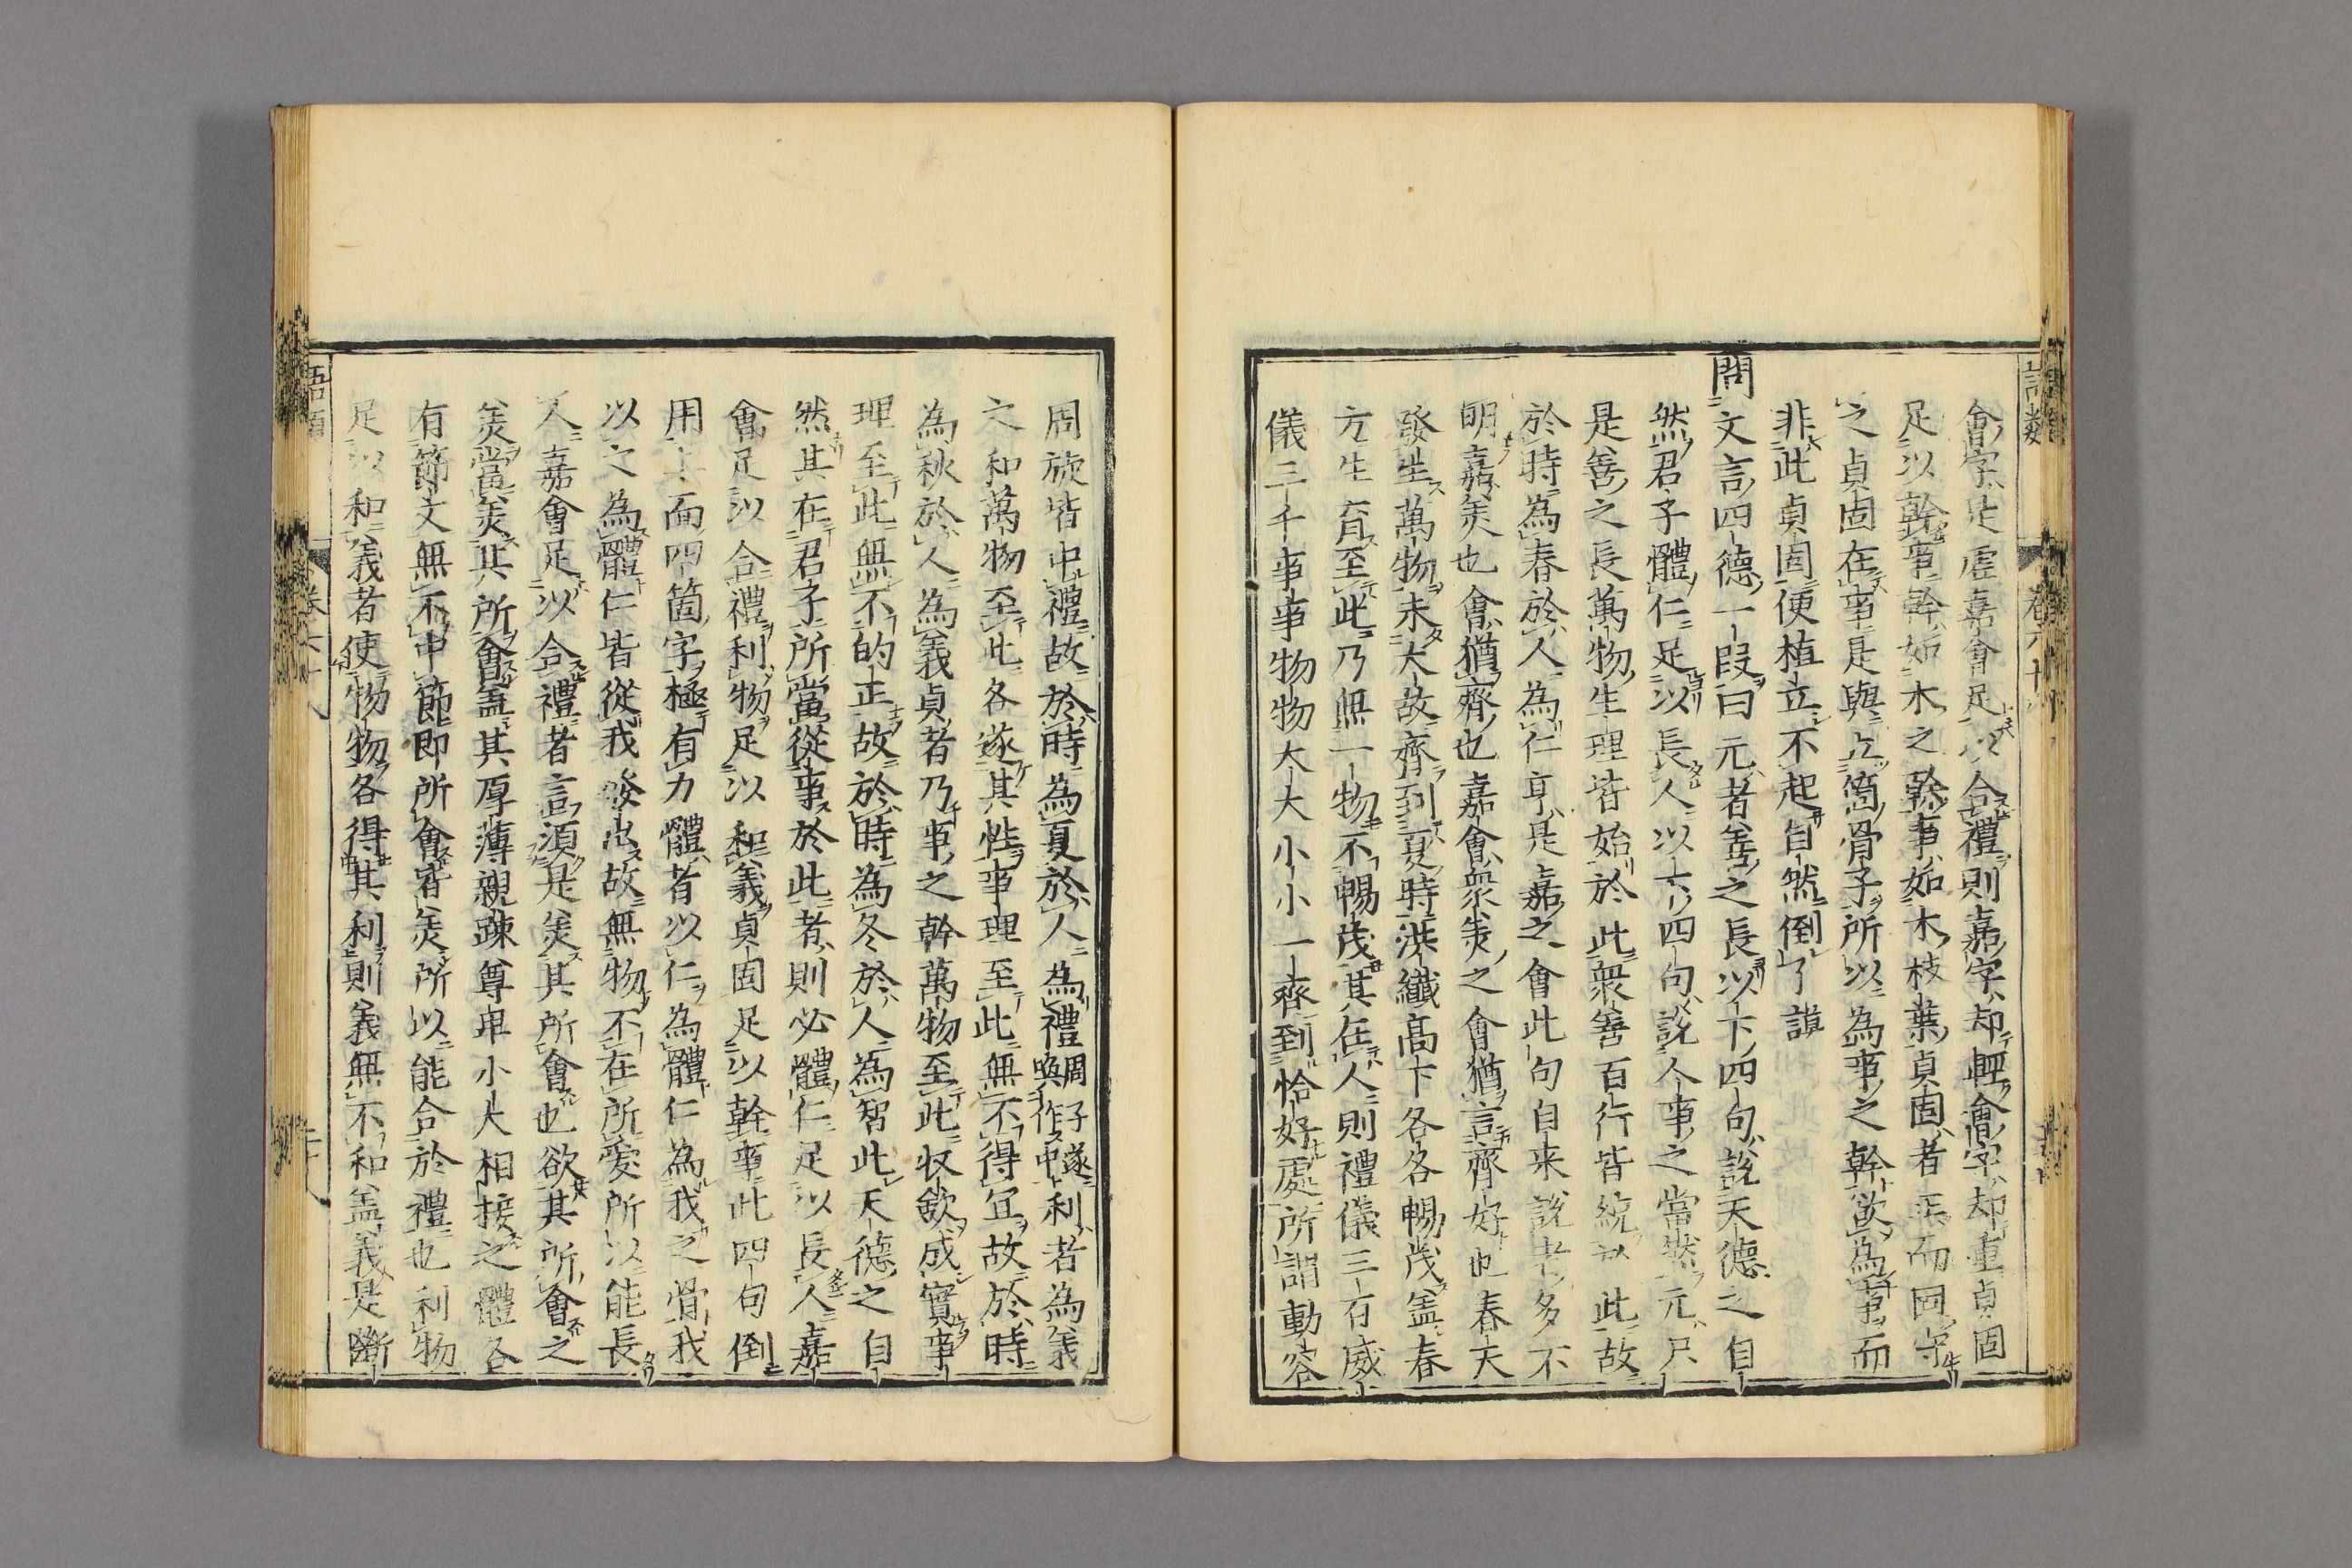 會字是虛嘉會足以合禮則嘉字却輕會字却重貞固
足以幹事幹如木之幹事如木枝葉貞固者正而固守
之貞固在事是與立箇骨子所以為事之幹欲為事而
非此貞固便植立不起自然倒了謨
問文言四德一段曰元者善之長以下四句說天德之自
然君子體仁足以長人以下四句說人事之當然元只
是善之長萬物生理皆始於此衆善百行皆統於此故
於時為春於人為仁亨是嘉之會此句自来說者多不
明嘉美也會猶齊也嘉會衆美之會猶言齊好也春天
發生萬物未大故齊到夏時洪纖高下各各暢茂盖春
方生育至此乃無一物不暢茂其在人則禮儀三百威
儀三千事事物物大大小小一齊到恰好處所謂動容
周旋皆中禮故於時為夏於人為禮周子遂喚作中利者為義
之和萬物至此各遂其性事理至此無不得宜故於時
為秋於人為義貞者乃事之幹萬物至此収斂成實事
理至此無不的正故於時為冬於人為智此天德之自
然其在君子所當從事於此者則必體仁足以長人嘉
會足以合禮利物足以和義貞固足以幹事此四句倒
用上面四箇字極有力體者以仁為體仁為我之骨我
以之為體仁皆從我發出故無物不在所愛所以能長
人嘉會足以合禮者言須是美其所會也欲其所會之
美當美其所會盖其厚薄親疎尊卑小大相接之體各
有節文無不中節即所會皆美所以能合於禮也利物
足以和義者使物物各得其利則義無不和盖義是斷